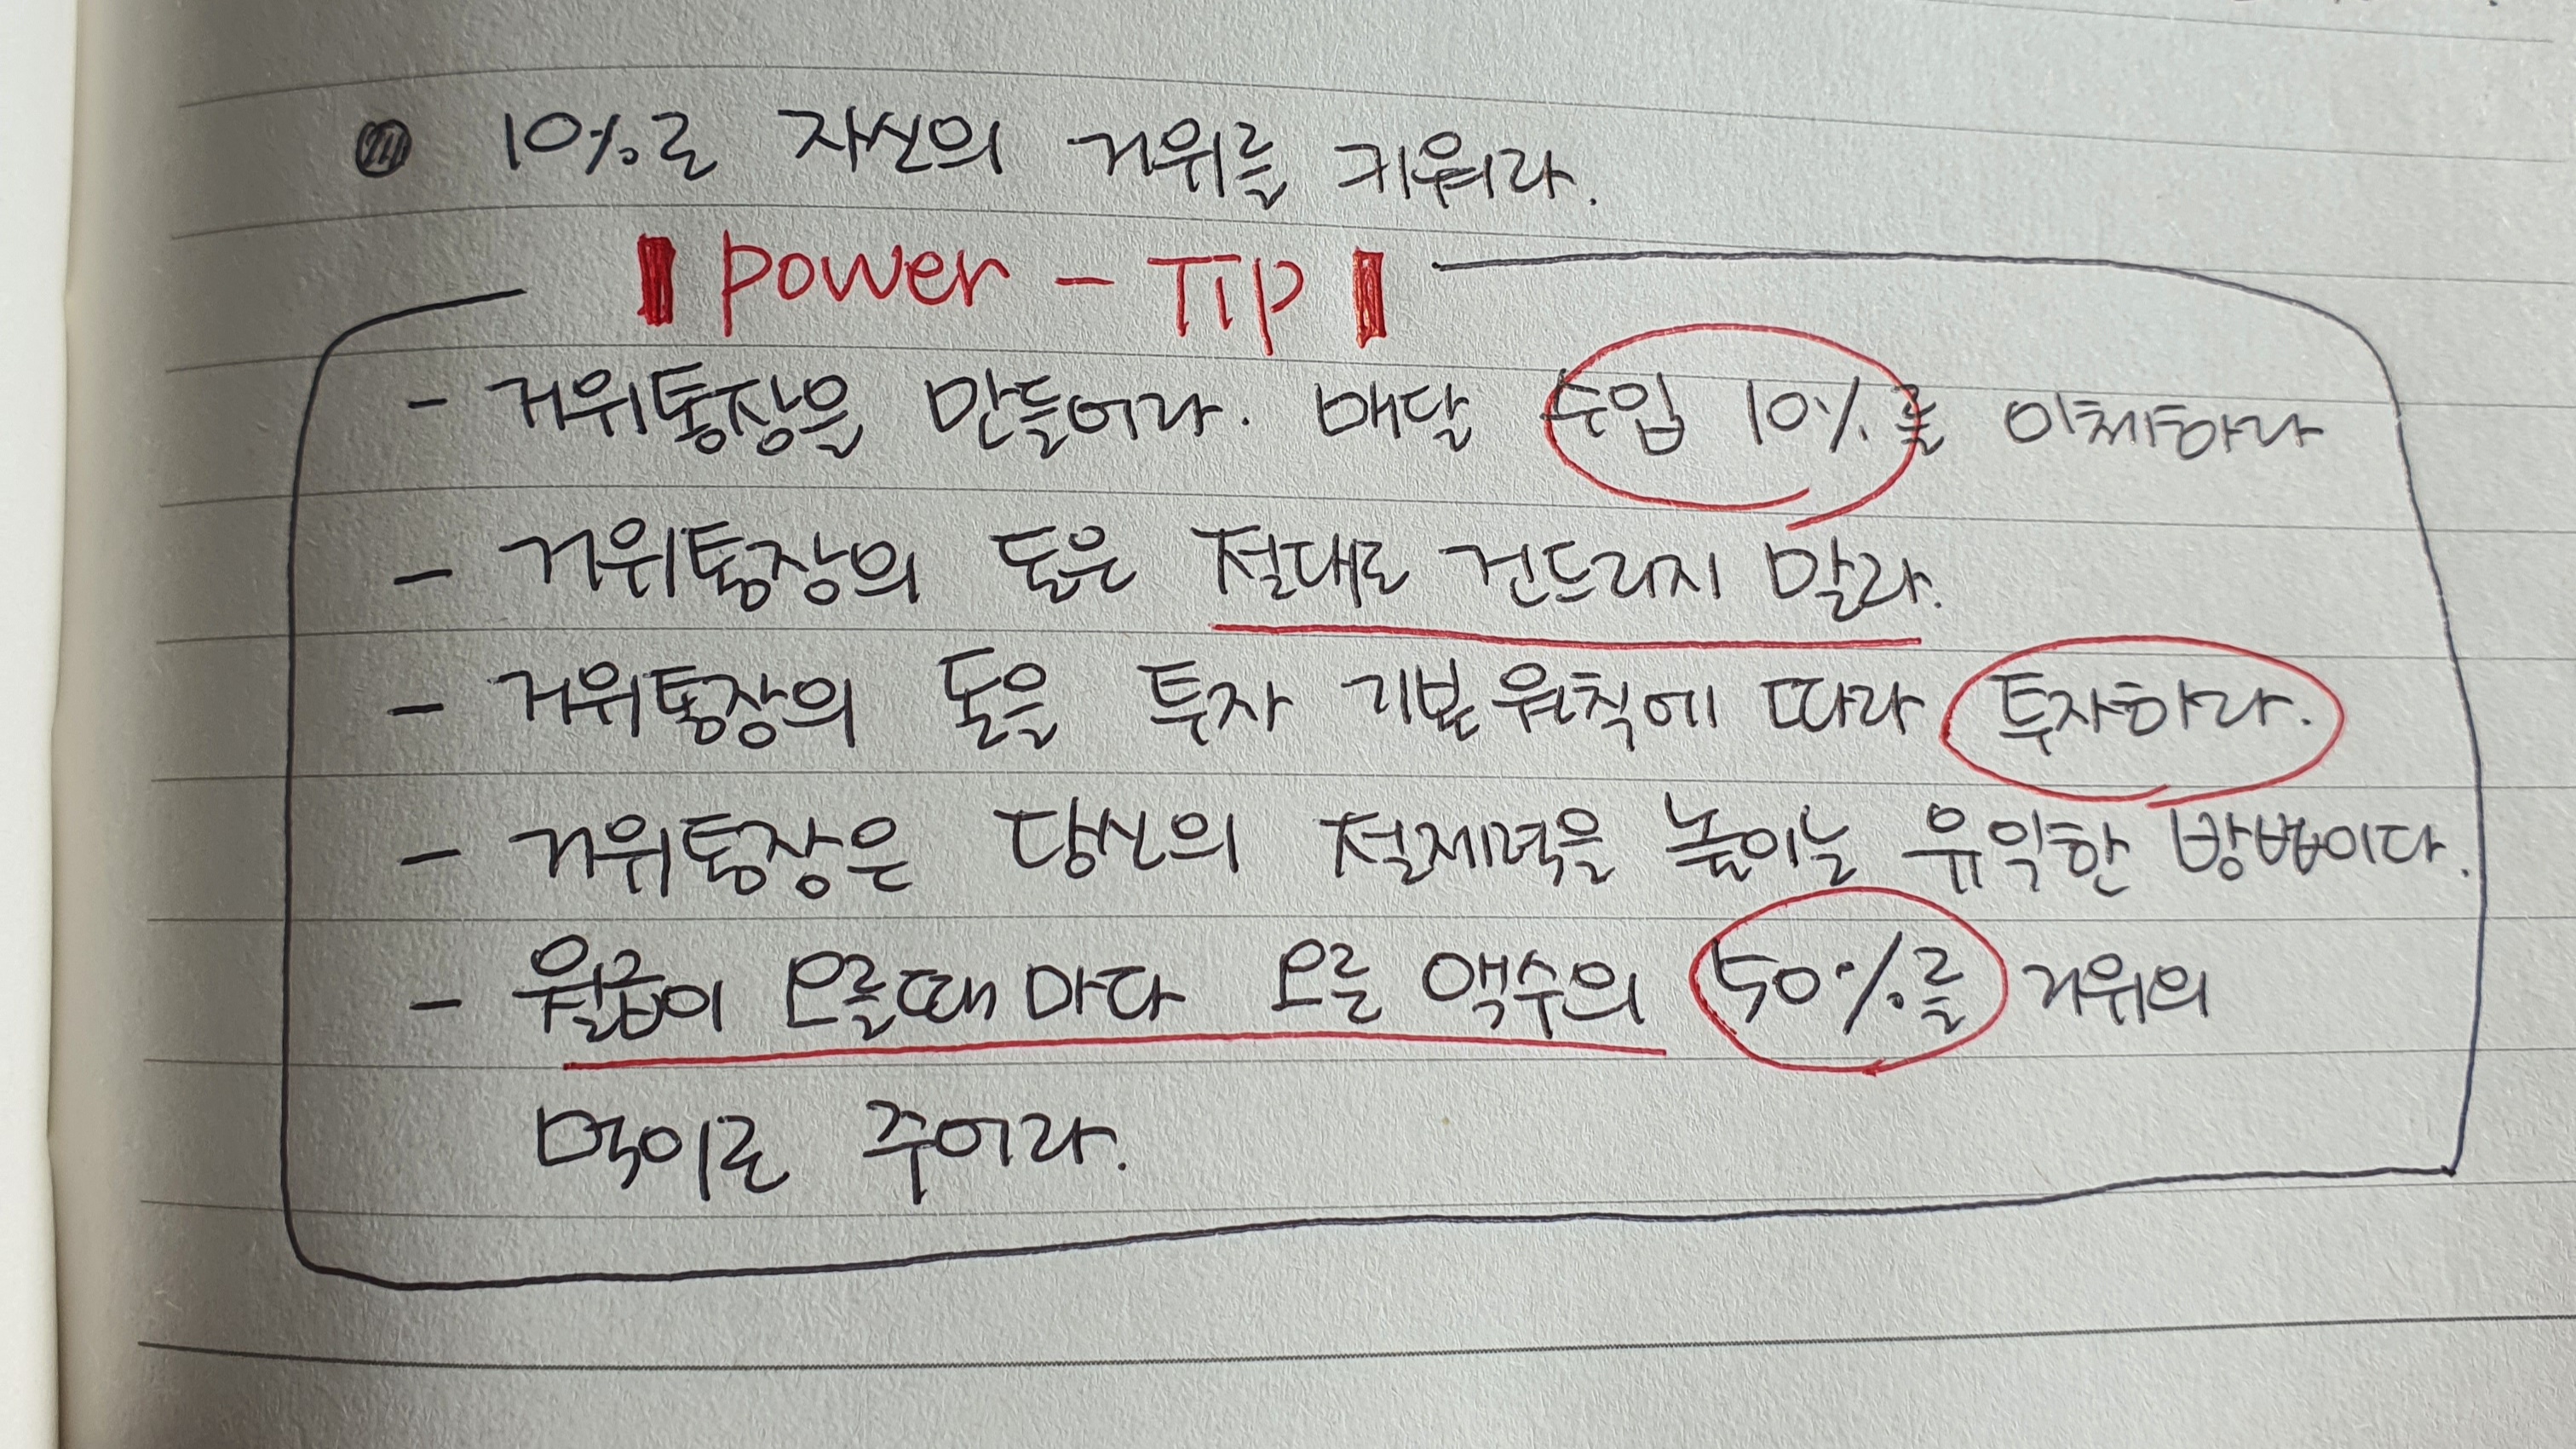 10%로 자신의 거위를 키워라.
power - Tip
- 거위통장을 만들어라. 매달 수입 10%를 이체하라
- 거위통장의 돈은 절대로 건드리지 말라.
- 거위통장의 돈을 투자 기본원칙에 따라 투자하라.
- 거위통장은 당신의 절제력을 높이는 유익한 방법이다.
- 월급이 오를때마다 오른 액수의 50%를 거위의
먹이로 주어라.